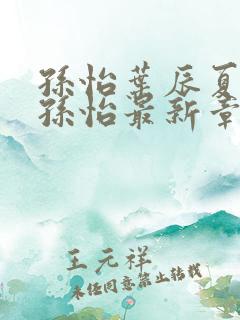 孫怡葉辰夏
孫怡最新章
王元祥
未經同意禁止轉載